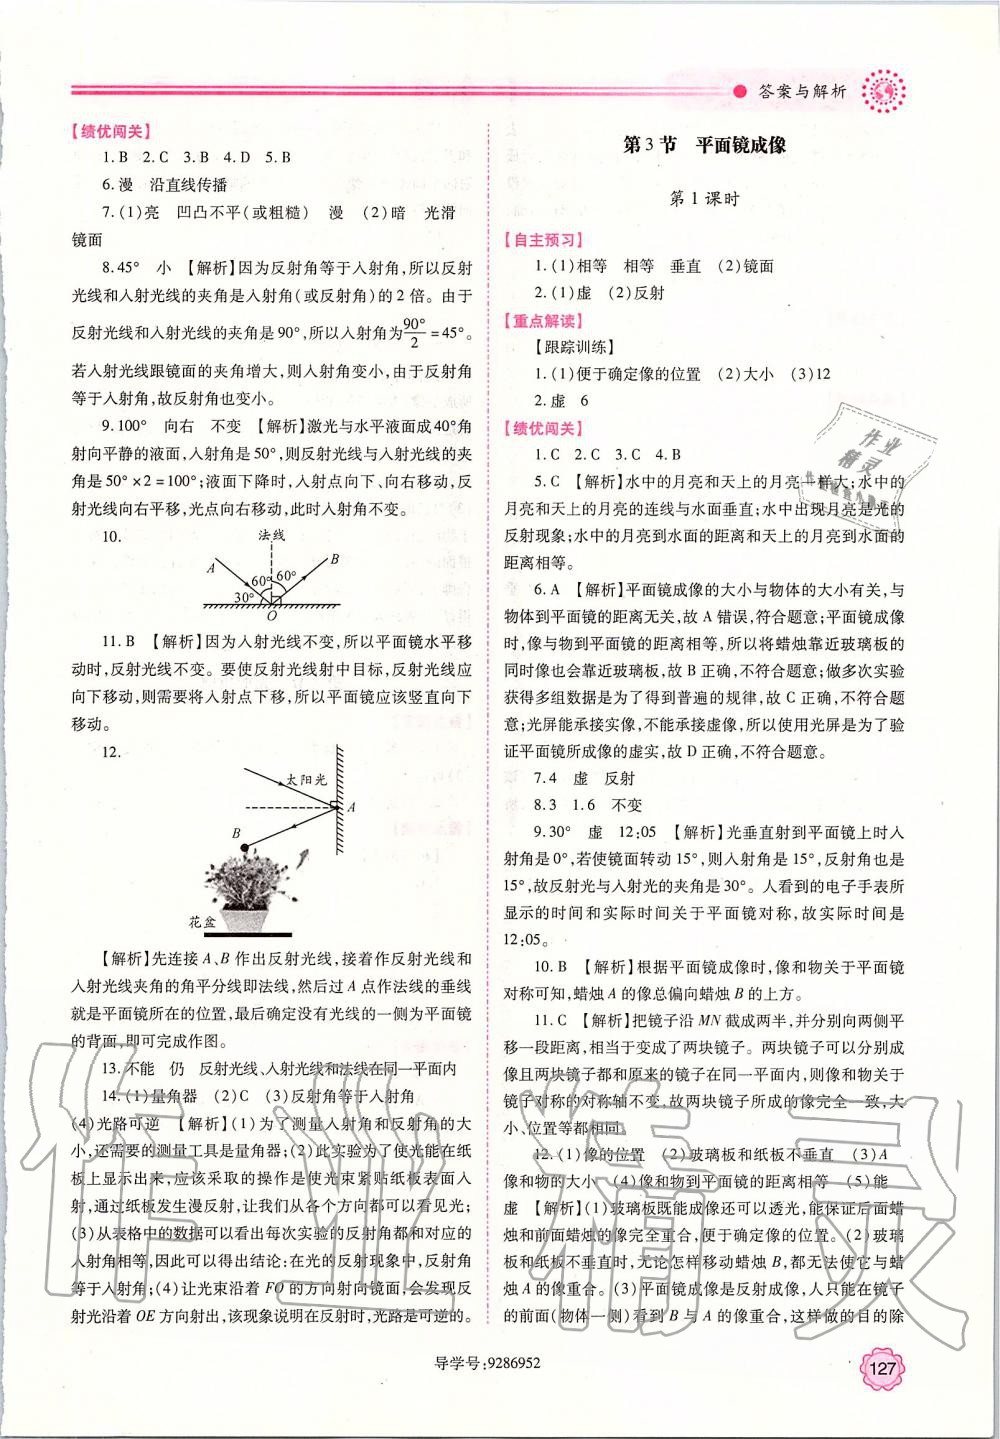 答案与解析
【绩优闯关】
1. B 2. C 3. B 4. D 5. B
6. 漫 沿直线传播
7. (1)亮 凹凸不平(或粗糙) 漫 (2)暗 光滑
镜面
8. 45° 小 【解析】因为反射角等于入射角,所以反射
光线和入射光线的夹角是入射角(或反射角)的2倍。由于
反射光线和入射光线的夹角是90°,所以入射角为90°/2=45°。
若入射光线跟镜面的夹角增大,则入射角变小,由于反射角
等于入射角,故反射角也变小。
9. 100° 向右 不变 【解析】激光与水平液面成40°角
射向平静的液面,入射角是50°,则反射光线与入射光线的夹
角是50°×2=100°;液面下降时,入射点向下、向右移动,反
射光线向右平移,光点向右移动,此时入射角不变。
10.
法线
A B
60° 60°
30°
O
11. B 【解析】因为入射光线不变,所以平面镜水平移
动时,反射光线不变。要使反射光线射中目标,反射光线应
向下移动,则需要将入射点下移,所以平面镜应该竖直向下
移动。
12.
太阳光
A
B
花盆
【解析】先连接A、B作出反射光线,接着作反射光线和
入射光线夹角的角平分线即法线,然后过A点作法线的垂线
就是平面镜所在的位置,最后确定没有光线的一侧为平面镜
的背面,即可完成作图。
13. 不能 仍 反射光线、入射光线和法线在同一平面内
14. (1)量角器 (2)C (3)反射角等于入射角
(4)光路可逆 【解析】(1)为了测量入射角和反射角的大
小,还需要的测量工具是量角器;(2)此实验为了使光能在纸
板上显示出来,应该采取的操作是使光束紧贴纸板表面入
射,通过纸板发生漫反射,让我们从各个方向都可以看见光;
(3)从表格中的数据可以看出每次实验的反射角都和对应的
入射角相等,因此可以得出结论:在光的反射现象中,反射角
等于入射角;(4)让光束沿着FO的方向射向镜面,会发现反
射光沿着OE方向射出,该现象说明在反射时,光路是可逆的。
第3节 平面镜成像
第1课时
【自主预习】
1. (1)相等 相等 垂直 (2)镜面
2. (1)虚 (2)反射
【重点解读】
【跟踪训练】
1. (1)便于确定像的位置 (2)大小 (3)12
2. 虚 6
【绩优闯关】
1. C 2. C 3. C 4. B
5. C 【解析】水中的月亮和天上的月亮一样大;水中的
月亮和天上的月亮的连线与水面垂直;水中出现月亮是光的
反射现象;水中的月亮到水面的距离和天上的月亮到水面的
距离相等。
6. A 【解析】平面镜成像的大小与物体的大小有关,与
物体到平面镜的距离无关,故A错误,符合题意;平面镜成像
时,像与物到平面镜的距离相等,所以将蜡烛靠近玻璃板的
同时像也会靠近玻璃板,故B正确,不符合题意;做多次实验
获得多组数据是为了得到普遍的规律,故C正确,不符合题
意;光屏能承接实像,不能承接虚像,所以使用光屏是为了验
证平面镜所成像的虚实,故D正确,不符合题意。
7. 4 虚 反射
8. 3 1.6 不变
9. 30° 虚 12:05 【解析】光垂直射到平面镜上时入
射角是0°,若使镜面转动15°,则入射角是15°,反射角也是
15°,故反射光与入射光的夹角是30°。人看到的电子手表所
显示的时间和实际时间关于平面镜对称,故实际时间是
12:05。
10. B 【解析】根据平面镜成像时,像和物关于平面镜
对称可知,蜡烛A的像总偏向蜡烛B的上方。
11. C 【解析】把镜子沿MN截成两半,并分别向两侧平
移一段距离,相当于变成了两块镜子。两块镜子可以分别成
像且两块镜子都和原来的镜子在同一平面内,则像和物关于
镜子对称的对称轴不变,故两块镜子所成的像完全一致,大
小、位置等都相同。
12. (1)像的位置 (2)玻璃板和纸板不垂直 (3)A
像和物的大小 (4)像和物到平面镜的距离相等 (5)能
虚 【解析】(1)玻璃板既能成像还可以透光,能保证后面蜡
烛和前面蜡烛的像完全重合,便于确定像的位置。(2)玻璃
板和纸板不垂直时,无论怎样移动蜡烛B,都无法使它与蜡
烛A的像重合。(3)平面镜成像是反射成像,人只能在镜子
的前面(物体一侧)看到B与A的像重合,这样做的目的除
导学号:9286952
127
作业
精灵
作业精灵